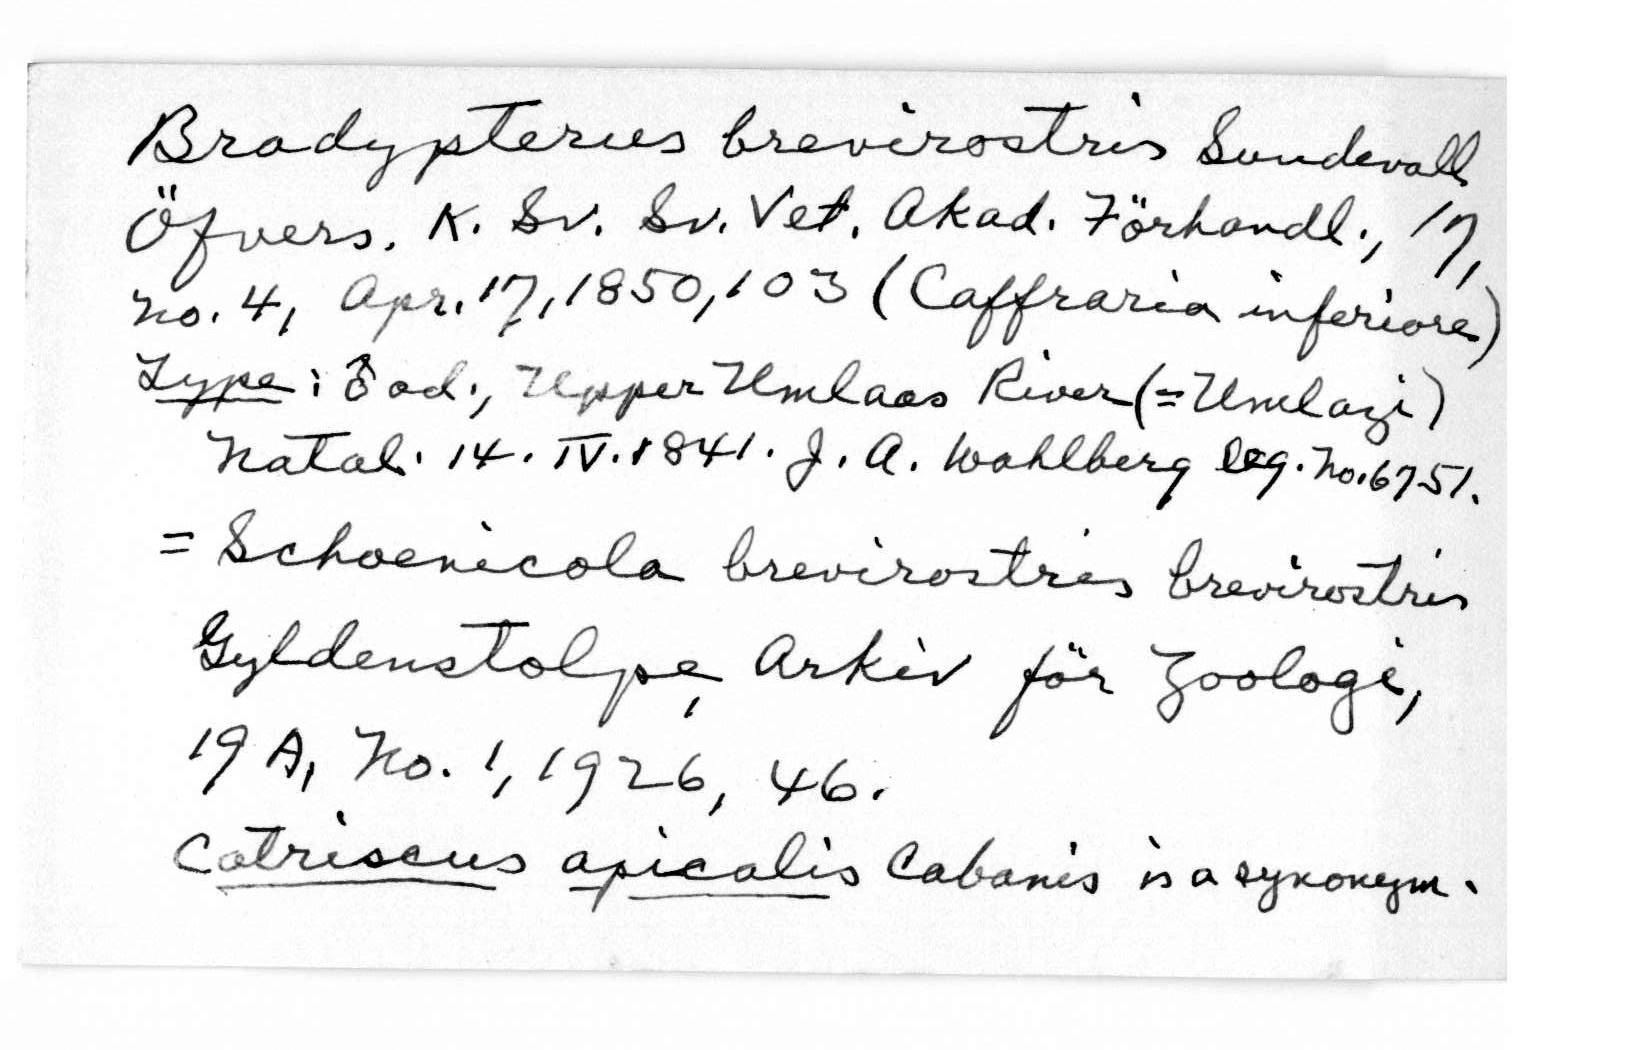 Bradypterus brevirostris Sundevall
Öfvers. K. Sv. Sv. Vet. Akad. Förhandl., 17,
no. 4, Apr. 17, 1850, 103 (Caffraria inferiore)
Type: ♂ ad., Upper Umlaas River (= Umlazi)
Natal. 14. IV. 1841. J. A. Wahlberg leg. No. 6751.
= Schoenicola brevirostris brevirostris
Gyldenstolpe, Arkiv för Zoologi,
19 A, No. 1, 1926, 46.
Catriscus apicalis Cabanis is a synonym.